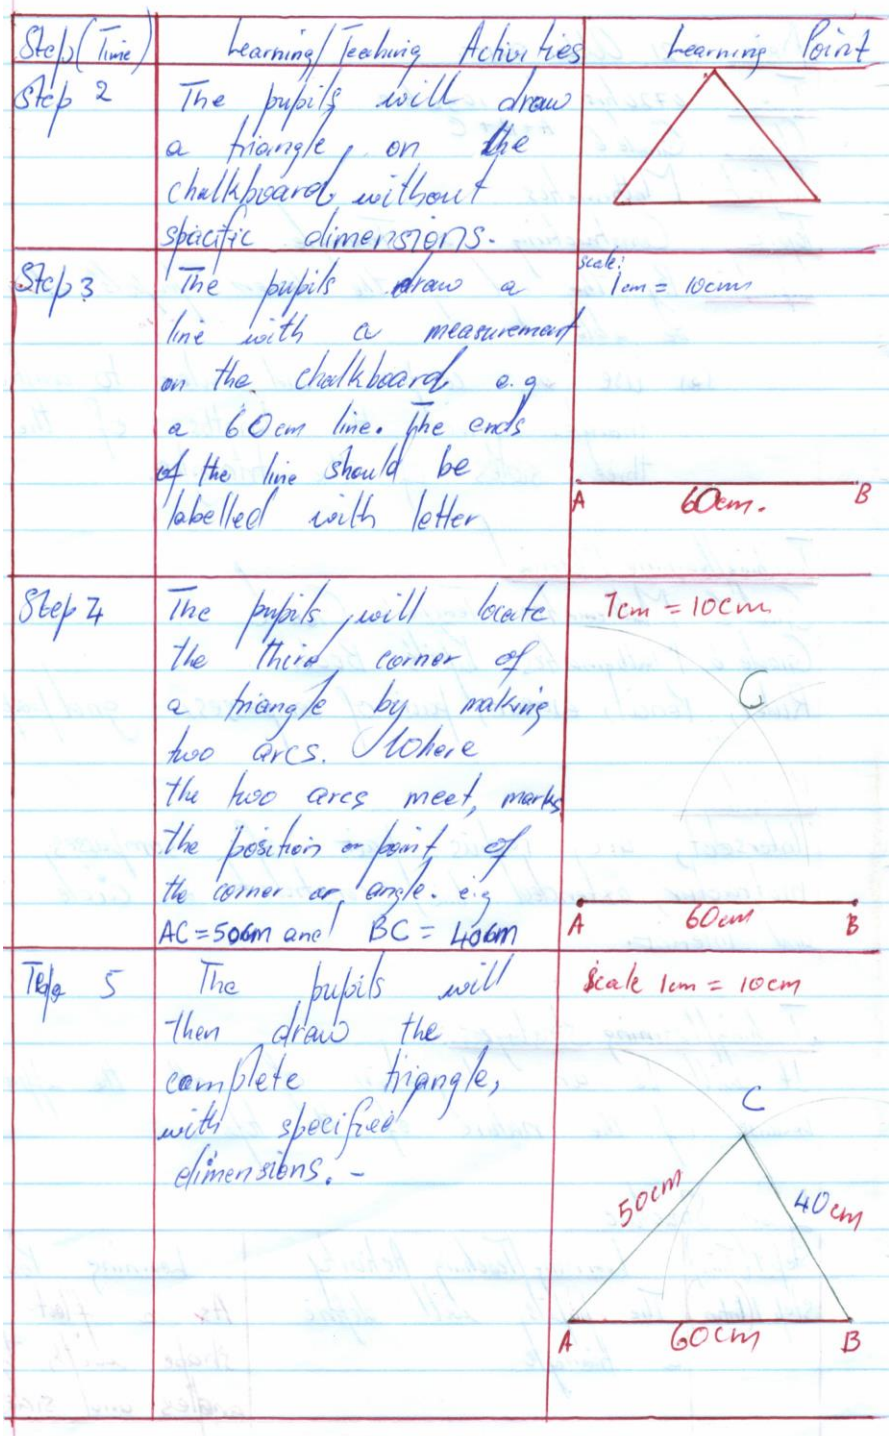 Step (Time) Learning/Teaching Activities Learning Point
Step 2 The pupils will draw
a triangle, on the
chalkboard, without
spacific dimensions.
Step 3 The pupils draw a
line with a measurement
on the chalkboard, e.g
a 60cm line. The ends
of the line should be
labelled with letter
scale:
1cm = 10cm
A 60cm. B
Step 4 The pupils, will locate
the third corner of
a triangle by making
two arcs. Where
the two arcs meet, marks
the position or point of
the corner or angle. e.g
AC = 50cm and BC = 40cm
1cm = 10cm
C
A 60cm B
5 The pupils will
then draw the
complete triangle,
with specified
dimensions. -
Scale 1cm = 10cm
C
50cm 40cm
A 60cm B